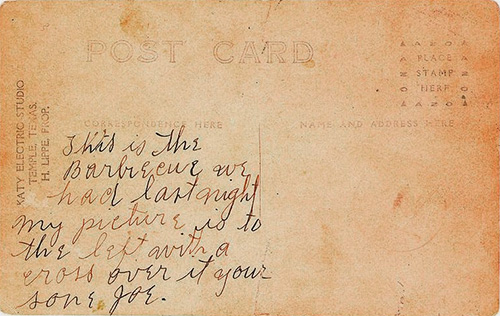 POST CARD
AZO
PLACE
STAMP
HERE
AZO
CORRESPONDENCE HERE
NAME AND ADDRESS HERE
KATY ELECTRIC STUDIO
TEMPLE, TEXAS.
H. LIPPE, PROP.
This is the
Barbecue we
had last night
my picture is to
the left with a
cross over it your
sone Joe.